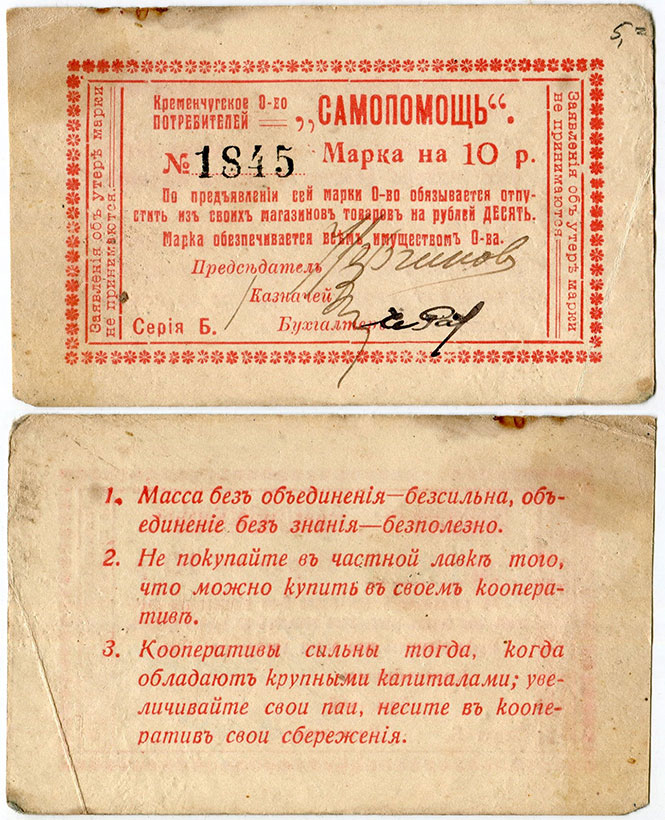 5,=
Кременчугское О-во
ПОТРЕБИТЕЛЕЙ
„САМОПОМОЩЬ“.
№ 1845 Марка на 10 р.
По предъявленіи сей марки О-во обязывается отпу-
стить изъ своихъ магазиновъ товаровъ на рублей ДЕСЯТЬ.
Марка обезпечивается всѣмъ имуществомъ О-ва.
Предсѣдатель
Казначей
Серія Б. Бухгалтеръ
Заявленія объ утерѣ марки
не принимаются.
Заявленія объ утерѣ марки
не принимаются.
1. Масса безъ объединенія—безсильна, объ-
единеніе безъ знанія—безполезно.
2. Не покупайте въ частной лавкѣ того,
что можно купить въ своемъ коопера-
тивѣ.
3. Кооперативы сильны тогда, когда
обладаютъ крупными капиталами; уве-
личивайте свои паи, несите въ коопе-
ративъ свои сбереженія.